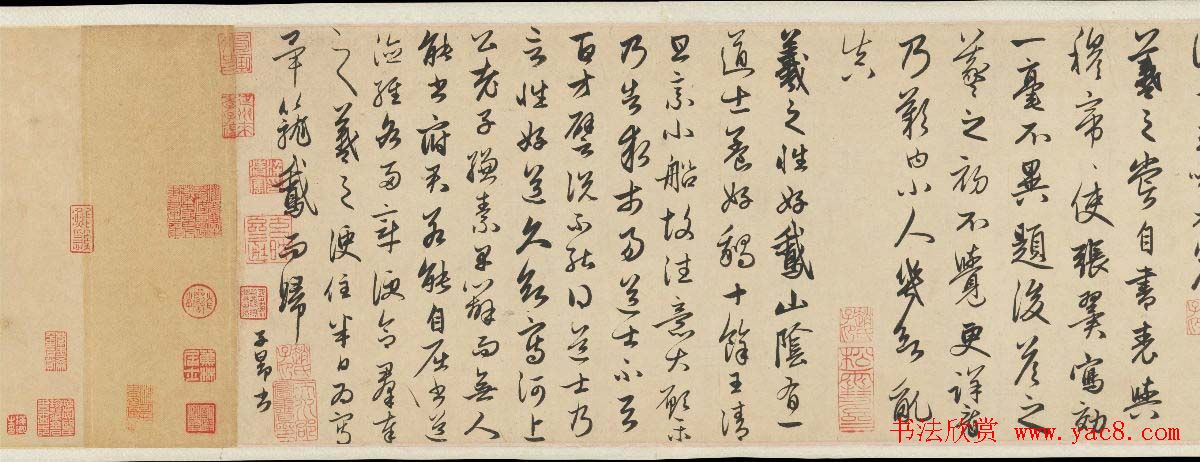 羲之嘗自書表與
穆帝〻使張翼寫效
一毫不異題後答之
羲之初不覺更詳看
乃歎曰小人幾欲亂
真
羲之性好鵞山陰有一
道士養好鵝十餘王清
旦乘小船故往意大願樂
乃告求市易道士不與
百方譬說不能得道士乃
言性好道久欲寫河上
公老子縑素早辦而無人
能書府君若能自屈書道
德經各兩章便合羣奉
之羲之便住半日為寫
畢籠鵞而歸
子昂書
书法欣赏 www.yac8.com